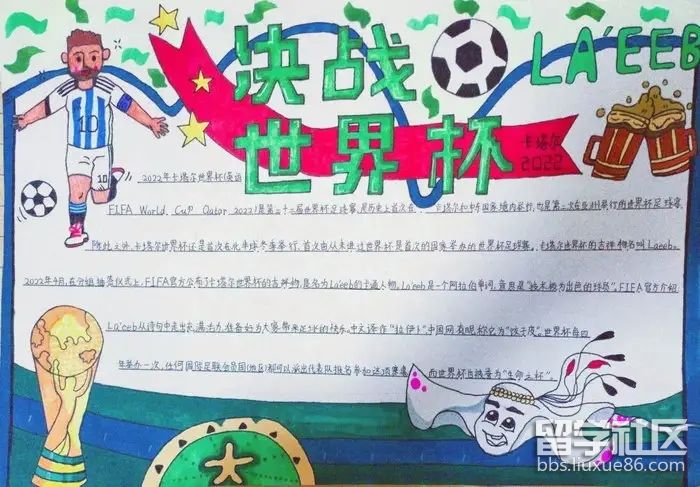 决战
世界杯
LA'EEB
卡塔尔
2022
10
10
2022年卡塔尔世界杯(英语
FIFA World Cup Qatar 2022)是第二十二届世界杯足球赛,是历史上首次在 卡塔尔和中东国家境内举行,也是第二次在亚洲举行的世界杯足球赛。
除此之外,卡塔尔世界杯还是首次在北半球冬季举行,首次由从未进过世界杯的国家举办的世界杯足球赛。卡塔尔世界杯的吉祥物名叫Laeeb。
2022年4月,在分组抽签仪式上,FIFA官方公布了卡塔尔世界杯的吉祥物,是名为La'eeb的卡通人物。La'eeb是一个阿拉伯单词,意思是"技术极为出色的球员"。FIFA官方介绍
La'eeb从诗句中走出来,满活力,准备好为大家带来足球的快乐。中文译作"拉伊卜",中国网友昵称它为"饺子皮"。世界杯每四
年举办一次,任何国际足联会员国(地区)都可以派出代表队报名参加这项赛事 而世界杯也被誉为"生命之杯"。
留学社区
bbs.liuxue86.com